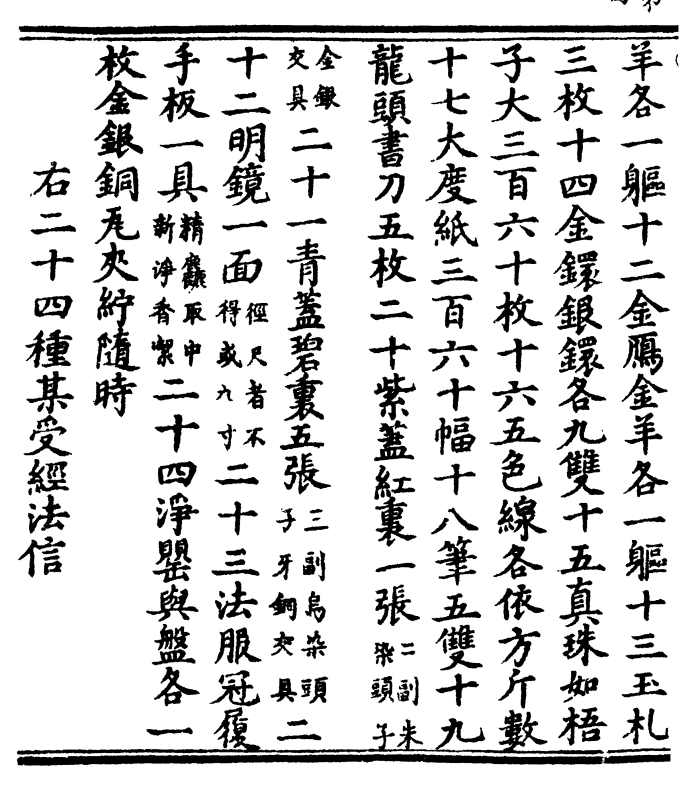 羊各一軀十二金鴈金羊各一軀十三玉札
三枚十四金鐶銀鐶各九雙十五真珠如梧
子大三百六十枚十六五色線各依方斤數
十七大度紙三百六十幅十八筆五雙十九
龍頭書刀五枚二十紫蓋紅裏一張二副朱染頭子
金銀交具二十一青蓋碧裏五張三副烏染頭子牙銅交具二
十二明鏡一面徑尺者不得或九寸二十三法服冠履
手板一具精麤取中新淨香絜二十四淨罌與盤各一
枚金銀銅瓦夾紵隨時
右二十四種某受經法信